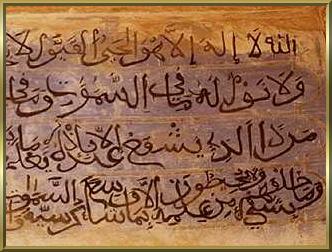 الله لا إله إلا هو الحي القيوم لا
ولا نوم له ما في السموت وما في
من ذا الذي يشفع عنده إلا بإذنه يعلم ما
وما خلفهم ولا يحيطون
بشيء من علمه إلا بما شاء وسع كرسيه السموت